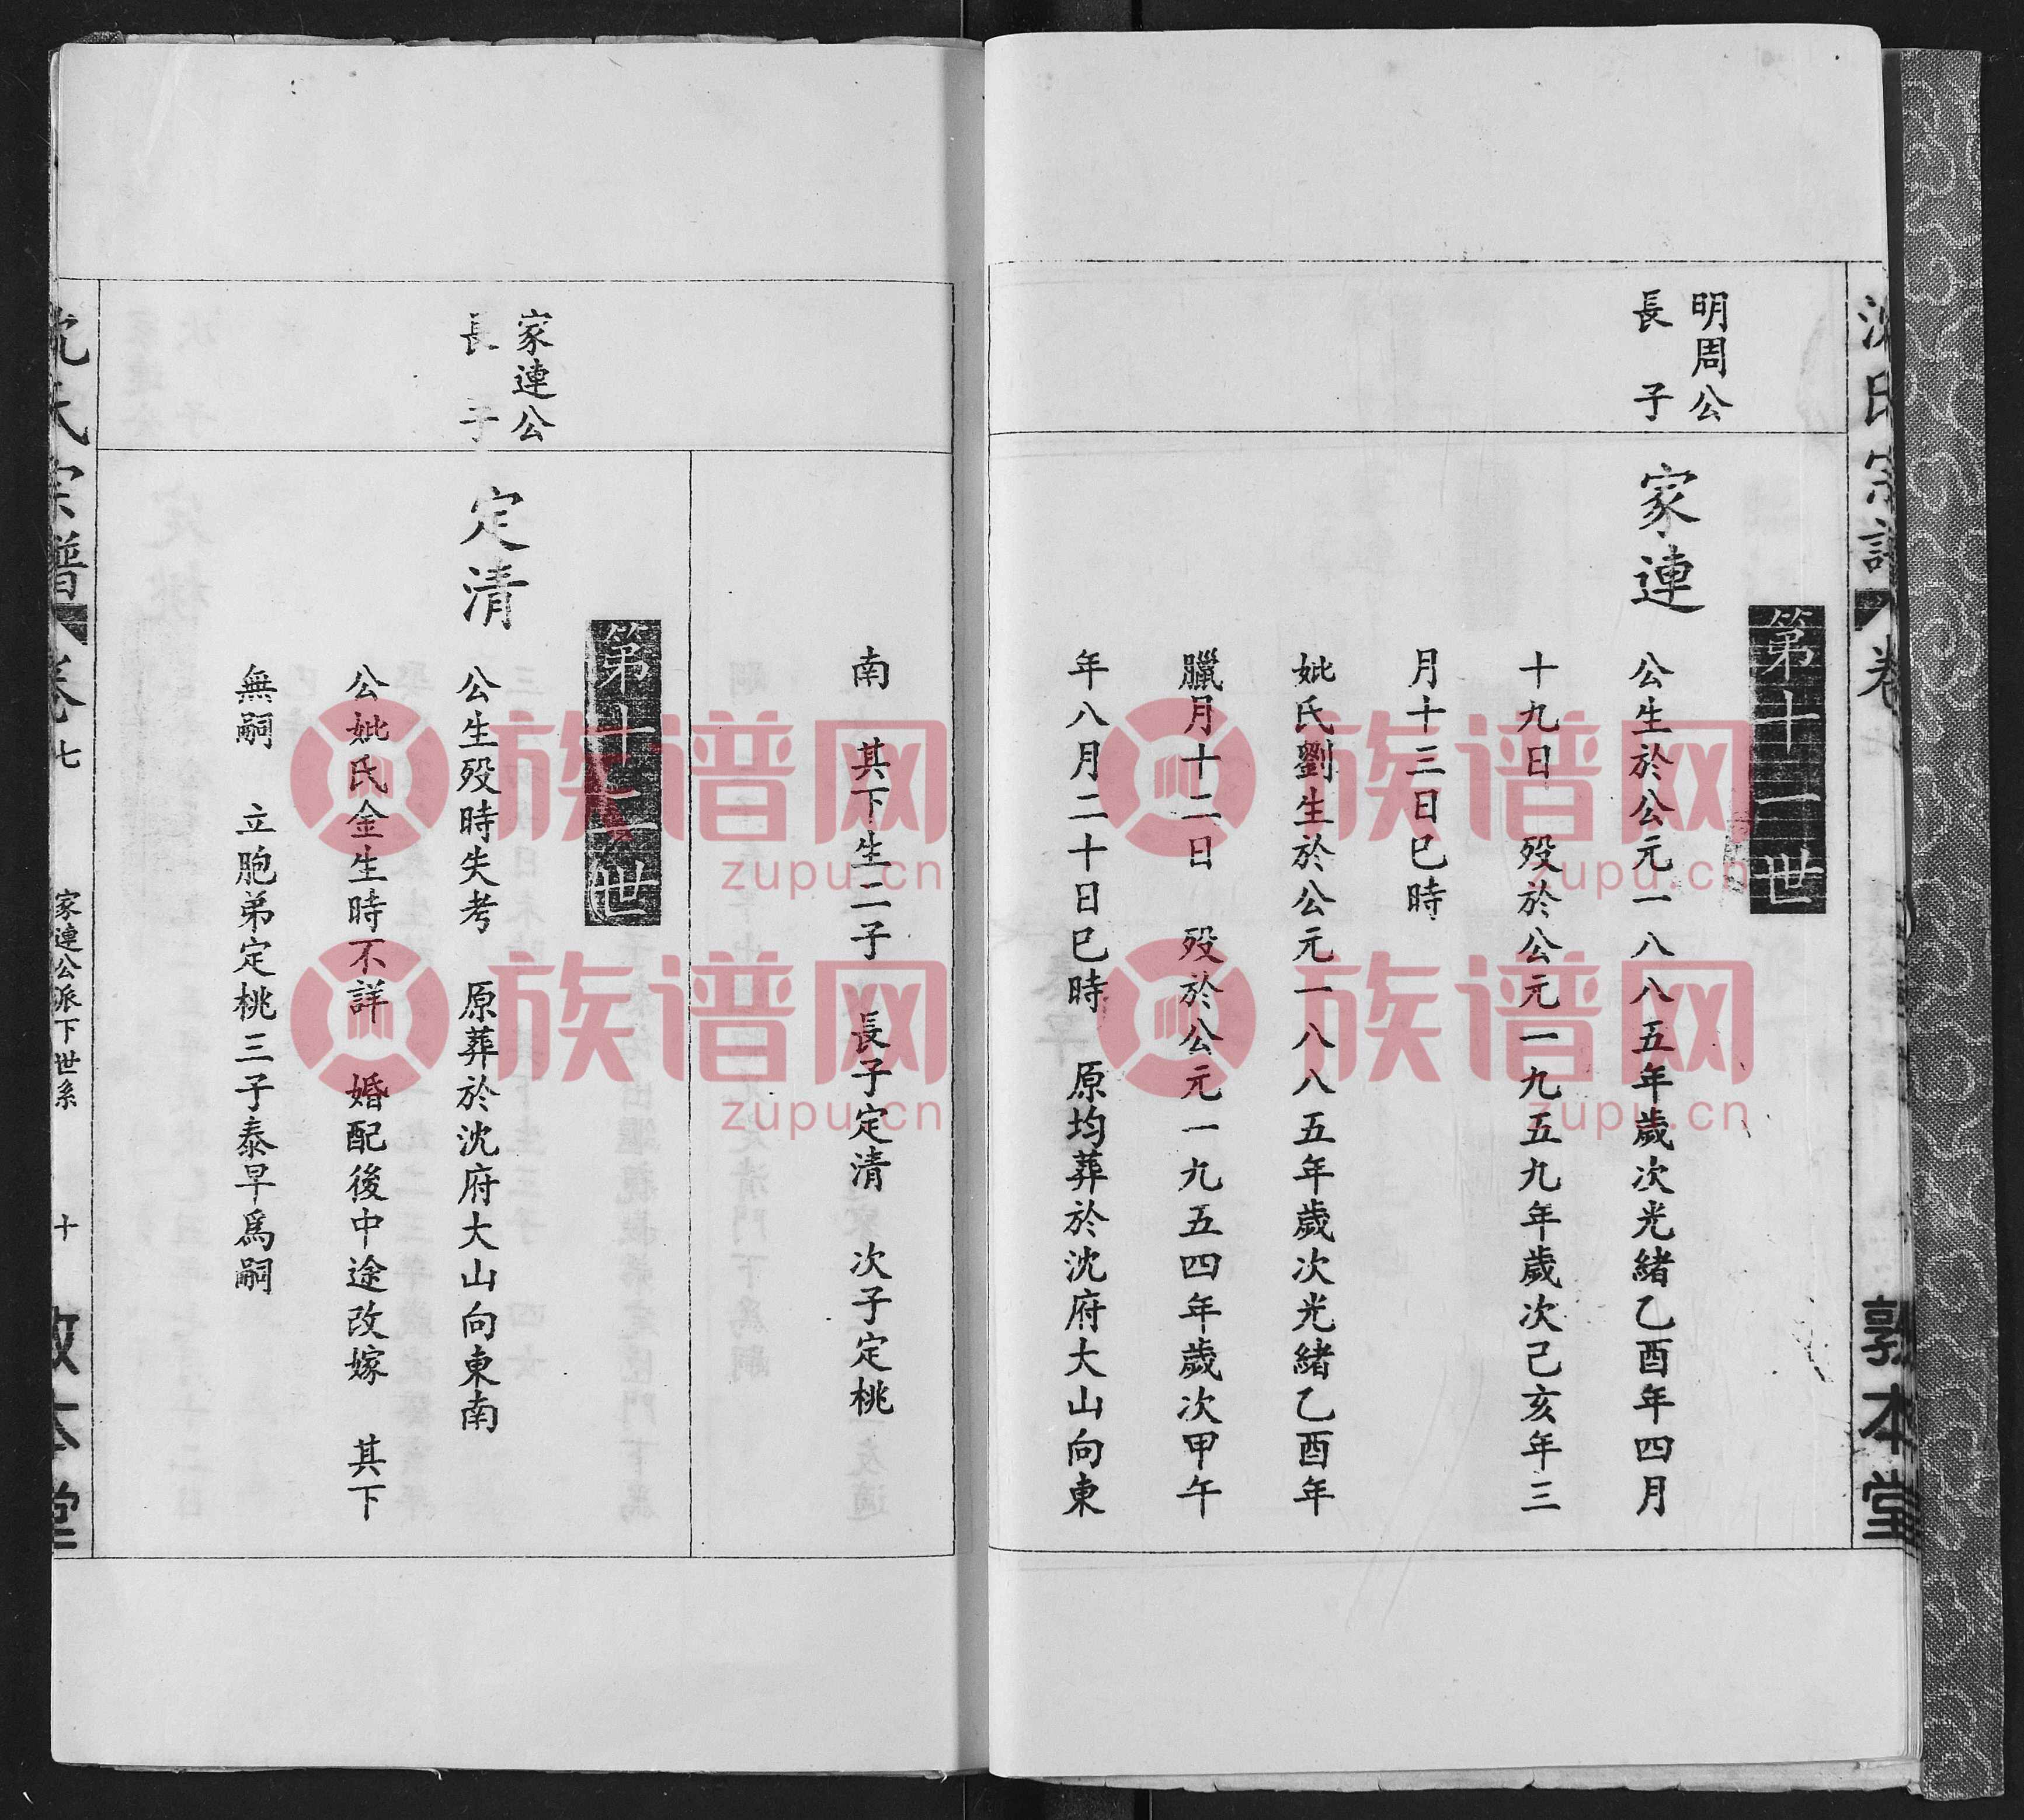 沈氏宗譜 卷七 敦本堂
第十一世
明周公
長子
家連
公生於公元一八八五年歲次光緒乙酉年四月
十九日 歿於公元一九五九年歲次己亥年三
月十三日巳時
妣氏劉生於公元一八八五年歲次光緒乙酉年
臘月十二日 歿於公元一九五四年歲次甲午
年八月二十日巳時 原均葬於沈府大山向東
南 其下生二子 長子定清 次子定桃
第十二世
家連公
長子
定清
公生歿時失考 原葬於沈府大山向東南
公妣氏金生時不詳 婚配後中途改嫁 其下
無嗣 立胞弟定桃三子泰早爲嗣
沈氏宗譜 卷七 家連公派下世系 十 敦本堂
族谱网
zupu.cn
族谱网
zupu.cn
族谱网
zupu.cn
族谱网
zupu.cn